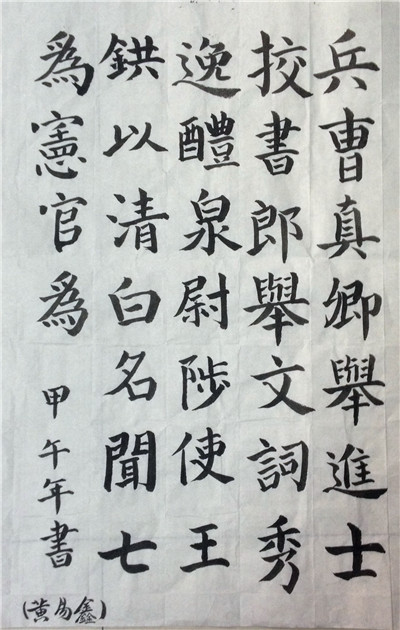 兵曹真卿舉進士
挍書郎舉文詞秀
逸醴泉尉陟使王
鉷以清白名聞七
為憲官為
甲午年書
(黃易鑫)